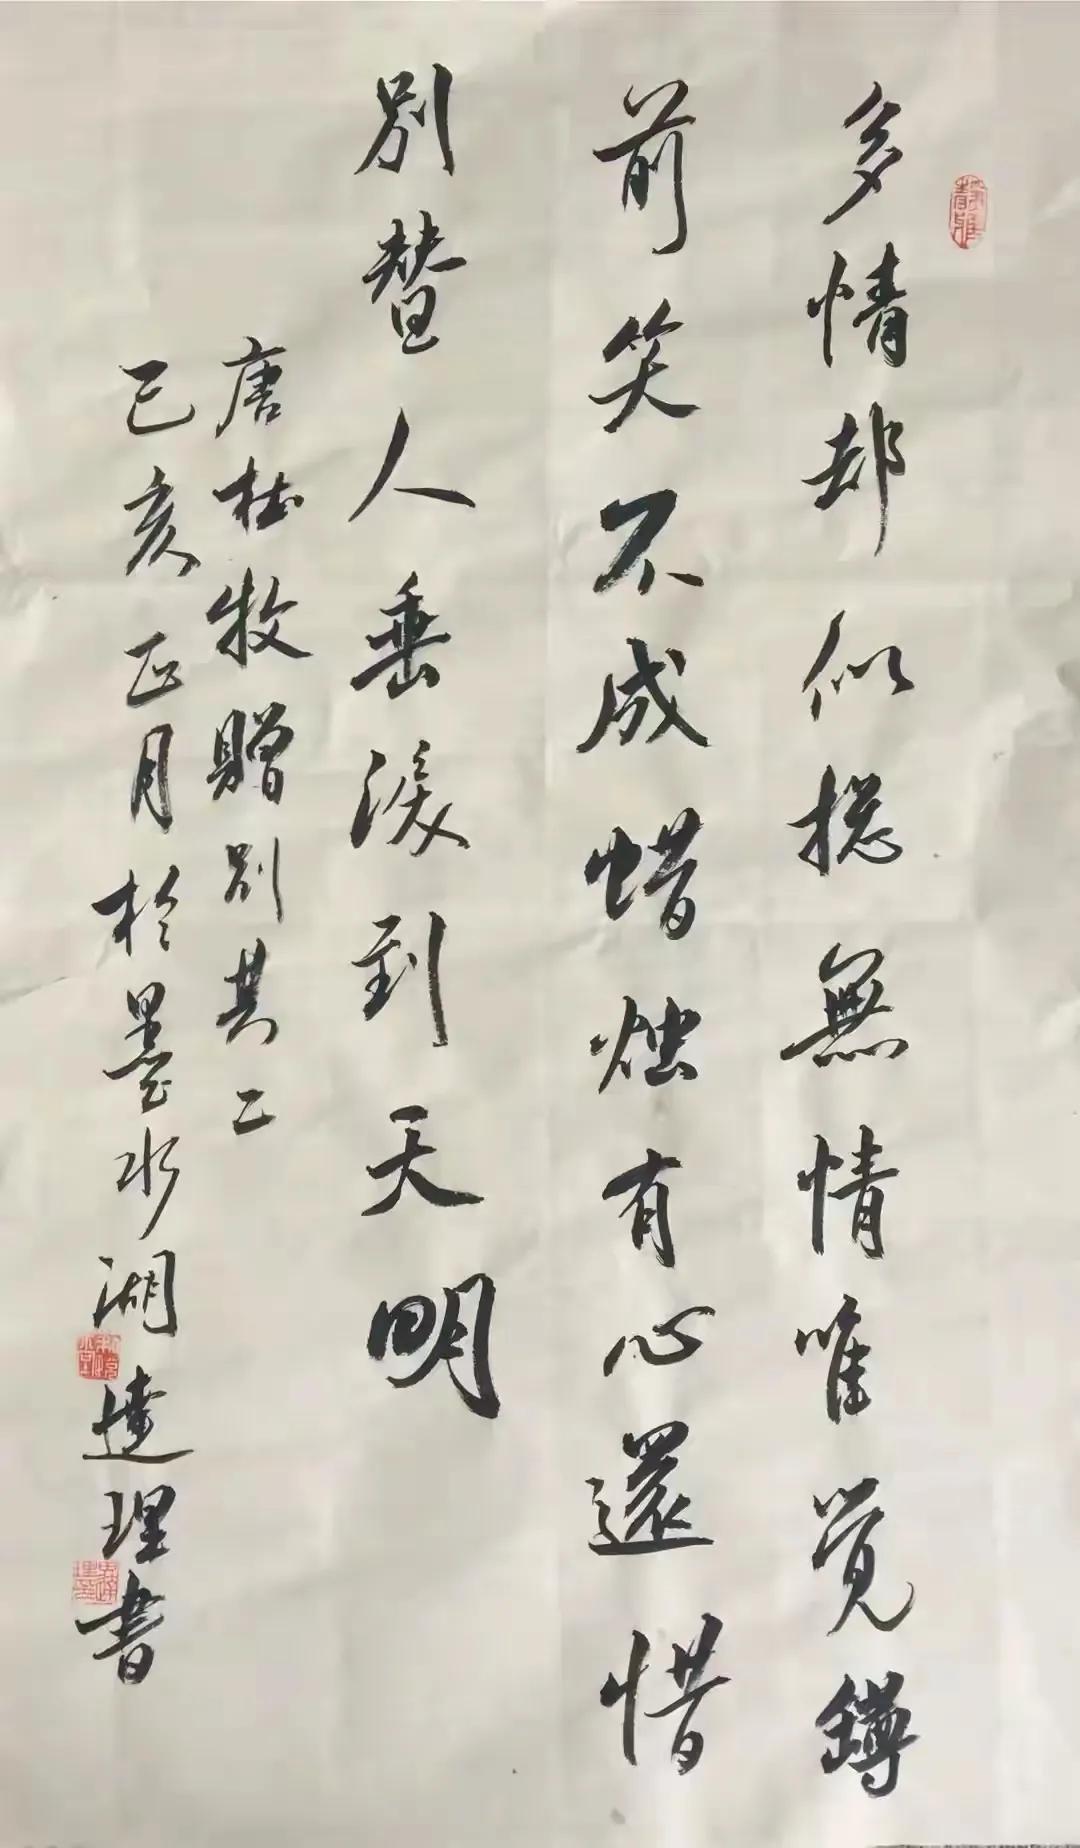 多情却似揔無情唯覺鐏
前笑不成蜡烛有心還惜
别替人垂淚到天明
唐杜牧贈别其二
己亥正月於墨水湖達理書